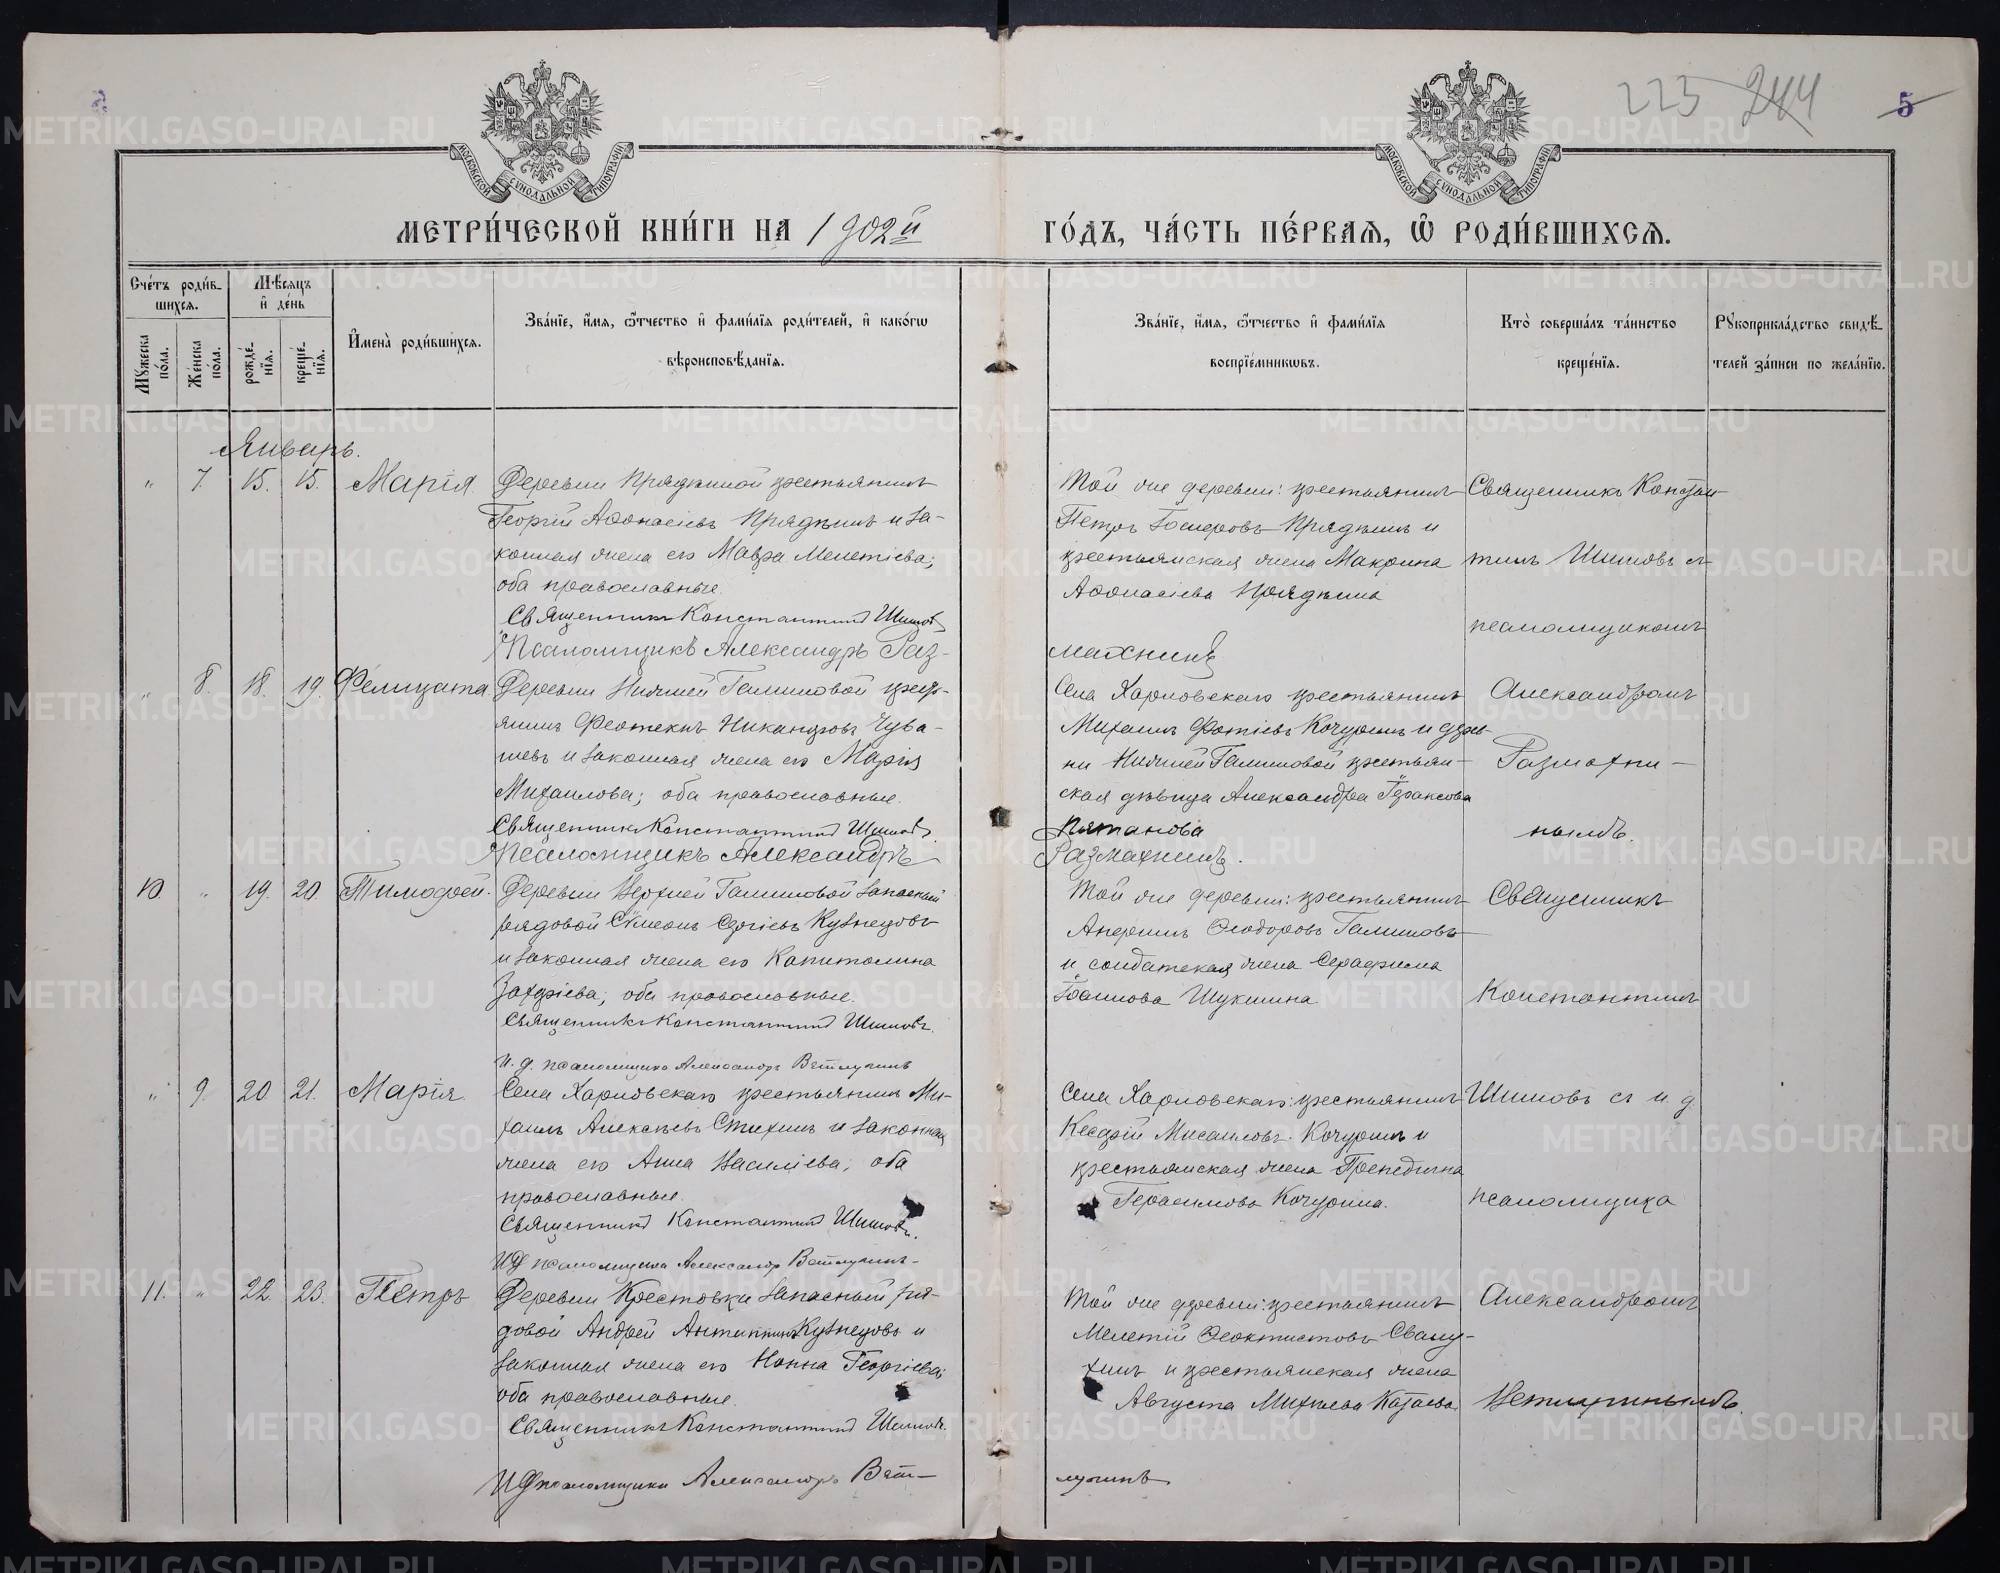 223 244 5
МОСКОВСКОЙ СѴНОДАЛЬНОЙ ТИПОГРАФІИ
МОСКОВСКОЙ СѴНОДАЛЬНОЙ ТИПОГРАФІИ
МЕТРИ́ЧЕСКОЙ КНИ́ГИ НА 1902й
ГО́ДЪ, ЧА́СТЬ ПЕ́РВАѦ, Ѡ҆ РОДИ́ВШИХСѦ.
Сче́тъ роди́в-
шихсѧ.
Мꙋ́жеска по́ла.
Же́нска по́ла.
Мѣ́сѧцъ и҆ де́нь
рожде́-
нїѧ.
креще́-
нїѧ.
И҆мена̀ роди́вшихсѧ.
Зва́нїе, и҆́мѧ, ѻ҆́тчество и҆ фами́лїѧ роди́телей, и҆ како́гѡ
вѣроисповѣ́данїѧ.
Зва́нїе, и҆́мѧ, ѻ҆́тчество и҆ фами́лїѧ
воспрїе́мникѡвъ.
Кто̀ соверша́лъ та́инство
креще́нїѧ.
Рꙋкоприкла́дство свидѣ́-
телей за́писи по жела́нїю.
Январь.
" 7. 15. 15. Марія.
Деревни Прядкиной крестьянинъ
Георгій Аѳонасіевъ Прядкинъ и за-
конная жена его Мавра Мелетіева;
оба православные.
Священникъ Константинъ Шишовъ
Псаломщикъ Александръ Раз-
Той же деревни: крестьянинъ
Петръ Прядкинъ и
крестьянская жена Макрина
Аѳонасіева Прядкина
махнинъ
Священникъ Констан-
тинъ Шишовъ съ
псаломщикомъ
" 8. 18. 19. Фелицата.
Деревни Нижней Галишовой кресть-
янинъ Никандровъ Чува-
шевъ и законная жена его Марія
Михаилова; оба православные.
Священникъ Константинъ Шишовъ.
Псаломщикъ Александръ
Села Харловскаго крестьянинъ
Михаилъ Фотіевъ Кочуринъ и дерев-
ни Нижней Галишовой крестьян-
ская дѣвица Александра
Размахнинъ.
Александромъ
Размахни-
нымъ.
10. " 19. 20. Тимоѳей.
Деревни Верхней Галишовой запасный
рядовой Сѵмеонъ Сергіевъ Кузнецовъ
и законная жена его Капитолина
Захаріева; оба православные.
Священникъ Константинъ Шишовъ.
И. д. псаломщика Александръ Ветлугинъ
Той же деревни: крестьянинъ
Ѳеодоровъ Галишовъ
и солдатская жена Серафима
Шукшина
Священникъ
Константинъ
" 9. 20. 21. Марія.
Села Харловскаго крестьянинъ Ми-
хаилъ Алексѣевъ Стихинъ и законная
жена его Анна Василіева; оба
православные.
Священникъ Константинъ Шишовъ.
ИД псаломщика Александръ Ветлугинъ
Села Харловскаго: крестьянинъ
Мисаиловъ Кочуринъ и
крестьянская жена
Герасимова Кочурина.
Шишовъ съ и. д.
псаломщика
11. " 22. 23. Петръ
Деревни Крестовки запасный ря-
довой Андрей Антипинъ Кузнецовъ и
законная жена его Нонна Георгіева;
оба православные.
Священникъ Константинъ Шишовъ.
ИД псаломщика Александръ Вет-
Той же деревни: крестьянинъ
Мелетій Ѳеоктистовъ
и крестьянская жена
Августа Катаева.
лугинъ
Александромъ
Ветлугинымъ.
METRIKI.GASO-URAL.RU